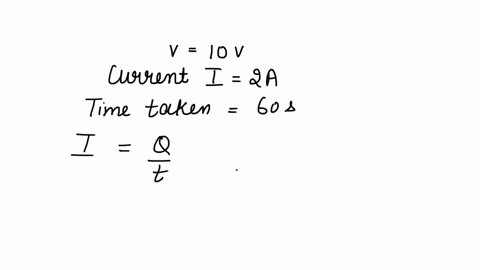 v = 10 v
Current I = 2A
Time taken = 60 s
I = Q/t